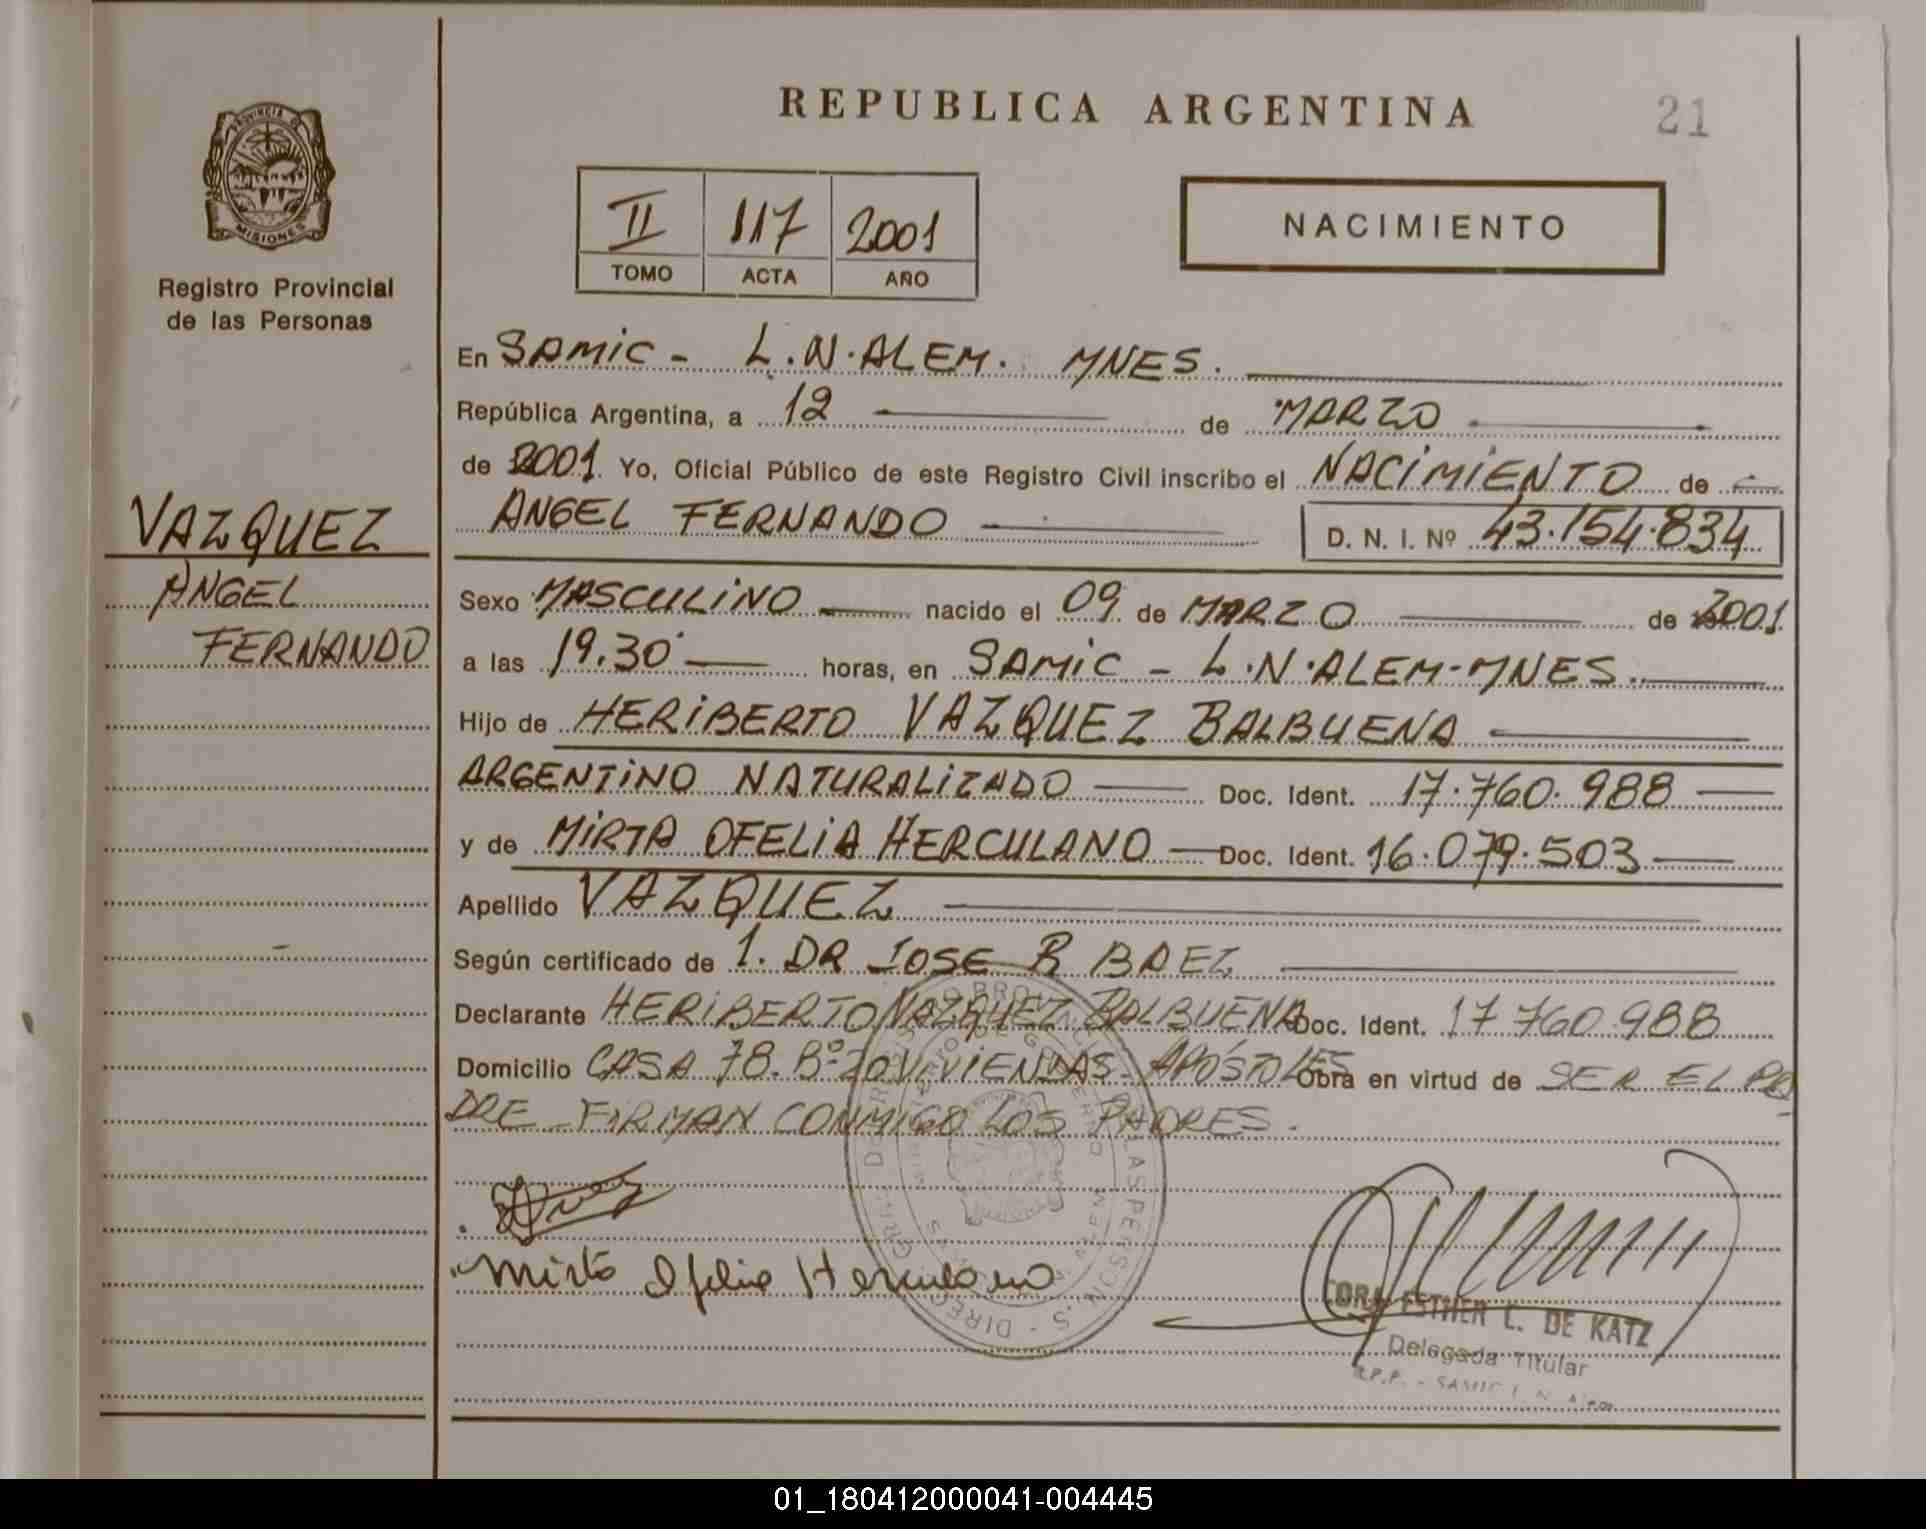 REPUBLICA ARGENTINA
21
PROVINCIA DE
MISIONES
Registro Provincial
de las Personas
II 117 2001
TOMO ACTA AÑO
NACIMIENTO
En SAMIC - L.N.ALEM. MNES.
República Argentina, a 12 de MARZO
de 2001. Yo, Oficial Público de este Registro Civil inscribo el NACIMIENTO de
ANGEL FERNANDO D. N. I. Nº 43.154.834
VAZQUEZ
ANGEL
FERNANDO
Sexo MASCULINO nacido el 09 de MARZO de 2001
a las 19.30 horas, en SAMIC - L.N.ALEM-MNES.
Hijo de HERIBERTO VAZQUEZ BALBUENA
ARGENTINO NATURALIZADO Doc. Ident. 17.760.988
y de MIRTA OFELIA HERCULANO Doc. Ident. 16.079.503
Apellido VAZQUEZ
Según certificado de 1. DR JOSE R BAEZ
Declarante HERIBERTO VAZQUEZ BALBUENA Doc. Ident. 17 760.988
Domicilio CASA 78. Bº 20 VIVIENDAS - APÓSTOLES Obra en virtud de SER EL PA
DRE - FIRMAN CONMIGO LOS PADRES.
Mirta Ofelia Herculano
DORA ESTHER L. DE KATZ
Delegada Titular
R.P.P. - SAMIC L. N. Alem
01_180412000041-004445